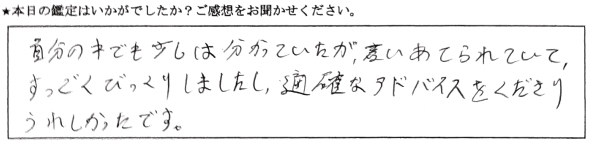 ★本日の鑑定はいかがでしたか？ご感想をお聞かせください。
自分の中でも少しは分かっていたが、言いあてられていて、
すっごくびっくりしましたし、適確なアドバイスをくださり
うれしかったです。